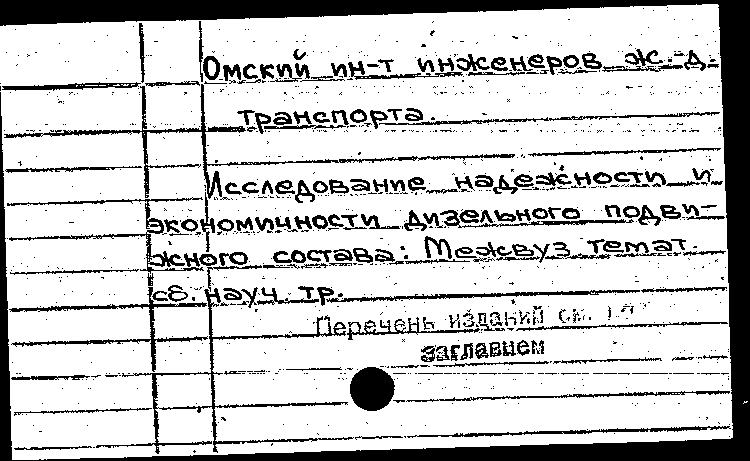 Омский ин-т инженеров ж.-д.
транспорта.
Исследование надежности и
экономичности дизельного подви-
жного состава: Межвуз. темат.
сб. науч. тр.
Перечень изданий см.
заглавием